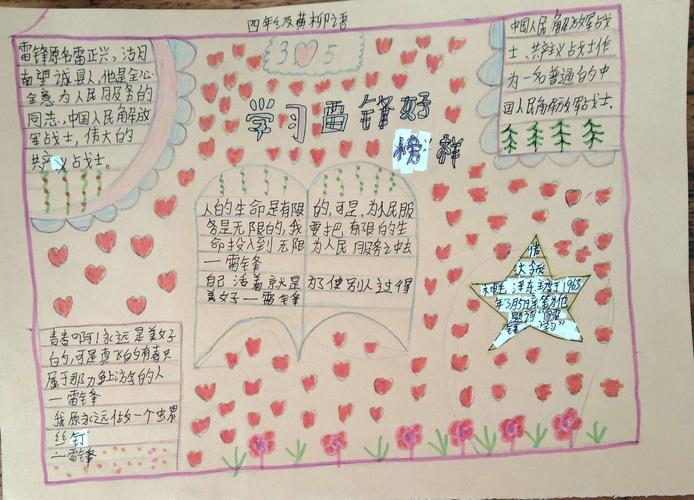 四年级黄柳语
3 5
学习雷锋好
榜样
雷锋原名雷正兴，沽月
南望诚县人，他是全心
全意为人民服务的
同志，中国人民角军放
军战士，伟大的
共产义占戈士。
中国人民解放军战
士、共产主义占戈士作
为一名普通的中
国人民角军放军战士．
人的生命是有限的，可是，为人民服
务是无限的，我要把有限的生
命投入到无限为人民服务之中去
一雷锋
自己活着就是为了使别人过得
美女子一雷锋
青春啊！永远是美好
白的，可是真
属于那
的人
一雷锋
我原永远做一个虫累
丝钉
一雷锋
大
泽东
于1963
年3月5日
题词
锋